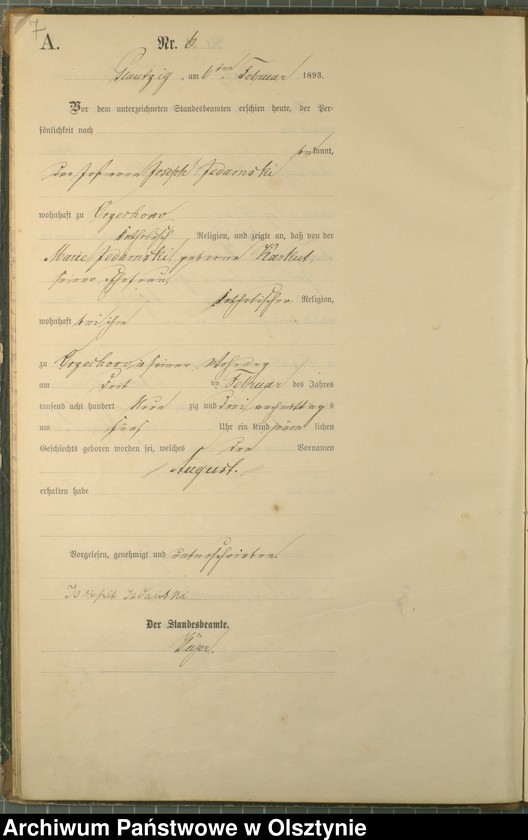 7
A.
Nr. 6.
am 6ten Februar 1893.
Vor dem unterzeichneten Standesbeamten erschien heute, der Per-
sönlichkeit nach
bekannt,
Joseph Jedamski
wohnhaft zu Orzechowo
katholisch Religion, und zeigte an, daß von der
Marie Jedamski, geborene Karkut,
seiner Ehefrau,
katholischer Religion,
wohnhaft bei ihm
zu Orzechowo in seiner Wohnung
am ten Februar des Jahres
tausend acht hundert Neun zig und drei Nachmittags
um fünf Uhr ein Kind männlichen
Geschlechts geboren worden sei, welches den Vornamen
August.
erhalten habe
Vorgelesen, genehmigt und unterschrieben
Joseph Jedamski
Der Standesbeamte.
Archiwum Państwowe w Olsztynie